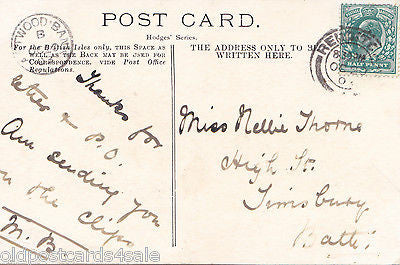 POST CARD.
Hodges' Series.
For the British Isles only, this Space as
well as the Back may be used for
Correspondence, vide Post Office
Regulations.
THE ADDRESS ONLY TO
WRITTEN HERE.
HALF PENNY
TWOOD BA
Thanks for
& P.O.
Am sending you
on the clips
M. B.
Miss Nellie Thorne
High St.
Timsbury
Bath
oldpostcards4sale